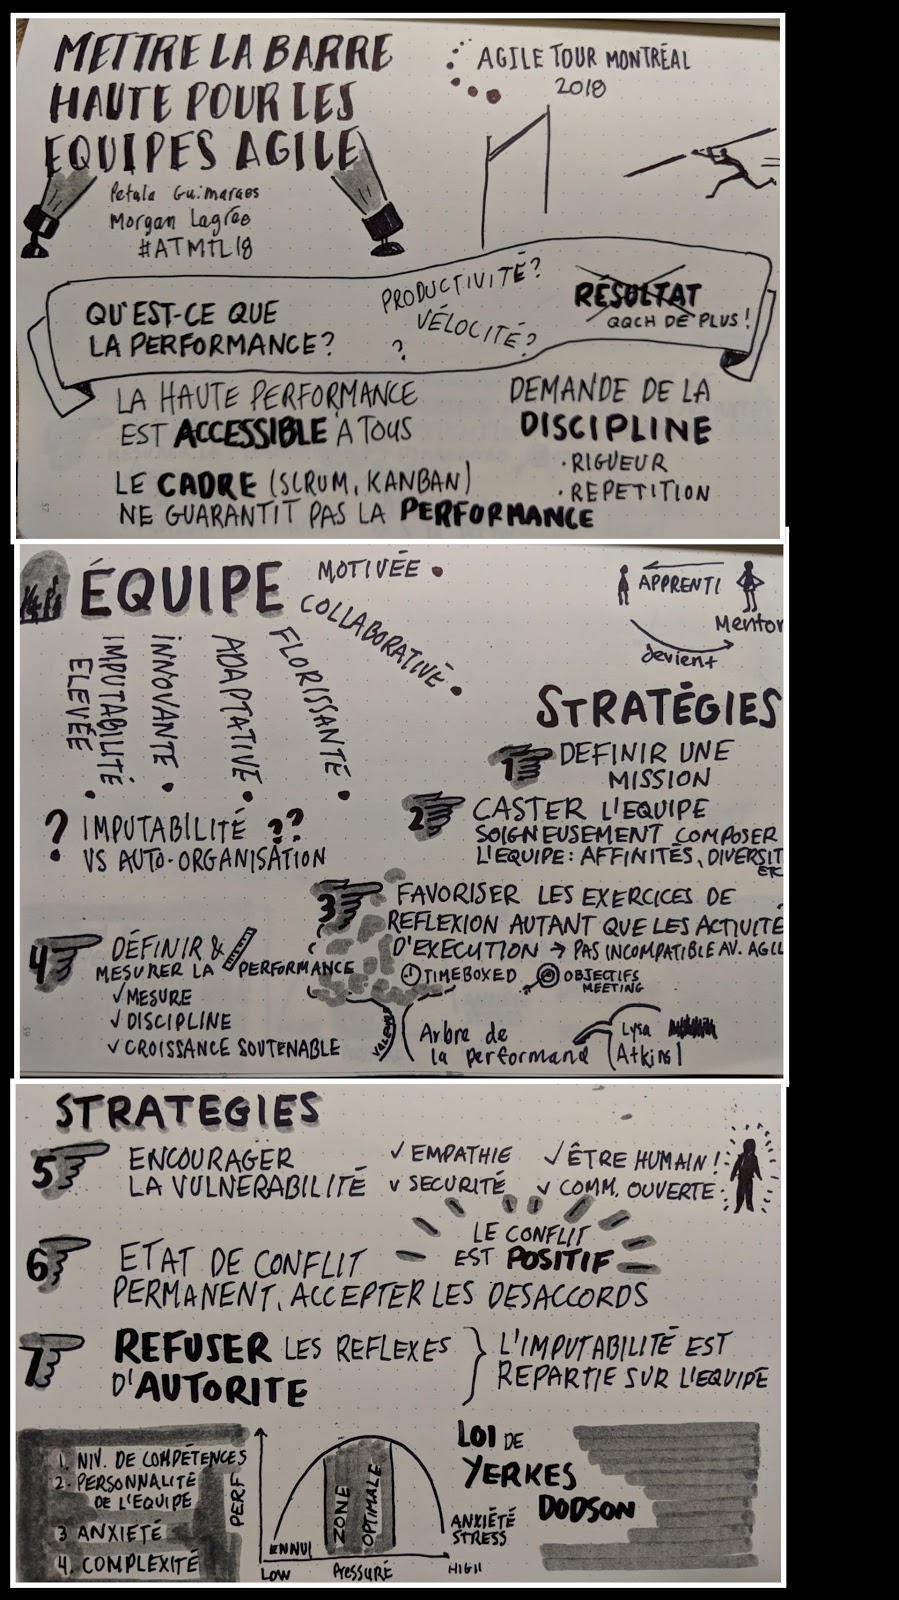 METTRE LA BARRE
HAUTE POUR LES
EQUIPES AGILE
Petala Guimaraes
Morgan Lagrée
#ATMTL18
AGILE TOUR MONTRÉAL
2018
QU'EST-CE QUE
LA PERFORMANCE?
PRODUCTIVITÉ?
VÉLOCITÉ?
?
RÉSULTAT
QQCH DE PLUS!
LA HAUTE PERFORMANCE
EST ACCESSIBLE A TOUS
LE CADRE (SCRUM, KANBAN)
NE GUARANTIT PAS LA PERFORMANCE
DEMANDE DE LA
DISCIPLINE
· RIGUEUR
· REPETITION
57
ÉQUIPE
MOTIVÉE
COLLABORATIVE
FLORISSANTE
ADAPTATIVE
INNOVANTE
IMPUTABILITÉ
ELEVÉE
? IMPUTABILITÉ ??
VS AUTO-ORGANISATION
APPRENTI
Mentor
devient
STRATÉGIES
1 DEFINIR UNE
MISSION
2 CASTER L'EQUIPE
SOIGNEUSEMENT COMPOSER
L'EQUIPE: AFFINITÉS, DIVERSIT
ER
3 FAVORISER LES EXERCICES DE
REFLEXION AUTANT QUE LES ACTIVITÉ
D'EXECUTION → PAS INCOMPATIBLE AV. AGIL
TIMEBOXED
OBJECTIFS
MEETING
4 DÉFINIR &
MESURER LA PERFORMANCE
✓ MESURE
✓ DISCIPLINE
✓ CROISSANCE SOUTENABLE
VALEURS
Arbre de
la performanc
Lysa
Atkins
STRATEGIES
5 ENCOURAGER
LA VULNERABILITÉ
✓ EMPATHIE
✓ SECURITÉ
✓ ÊTRE HUMAIN!
✓ COMM. OUVERTE
6 ETAT DE CONFLIT
PERMANENT, ACCEPTER LES DESACCORDS
LE CONFLIT
EST POSITIF
7 REFUSER LES REFLEXES
D'AUTORITE
L'IMPUTABILITÉ EST
REPARTIE SUR L'EQUIPE
1. NIV. DE COMPÉTENCES
2. PERSONNALITÉ
DE L'EQUIPE
3 ANXIÉTÉ
4. COMPLEXITÉ
PERF
ENNUI
ZONE
OPTIMALE
ANXIÉTÉ
STRESS
LOW
PRESSURE
HIGH
LOI DE
YERKES
DODSON